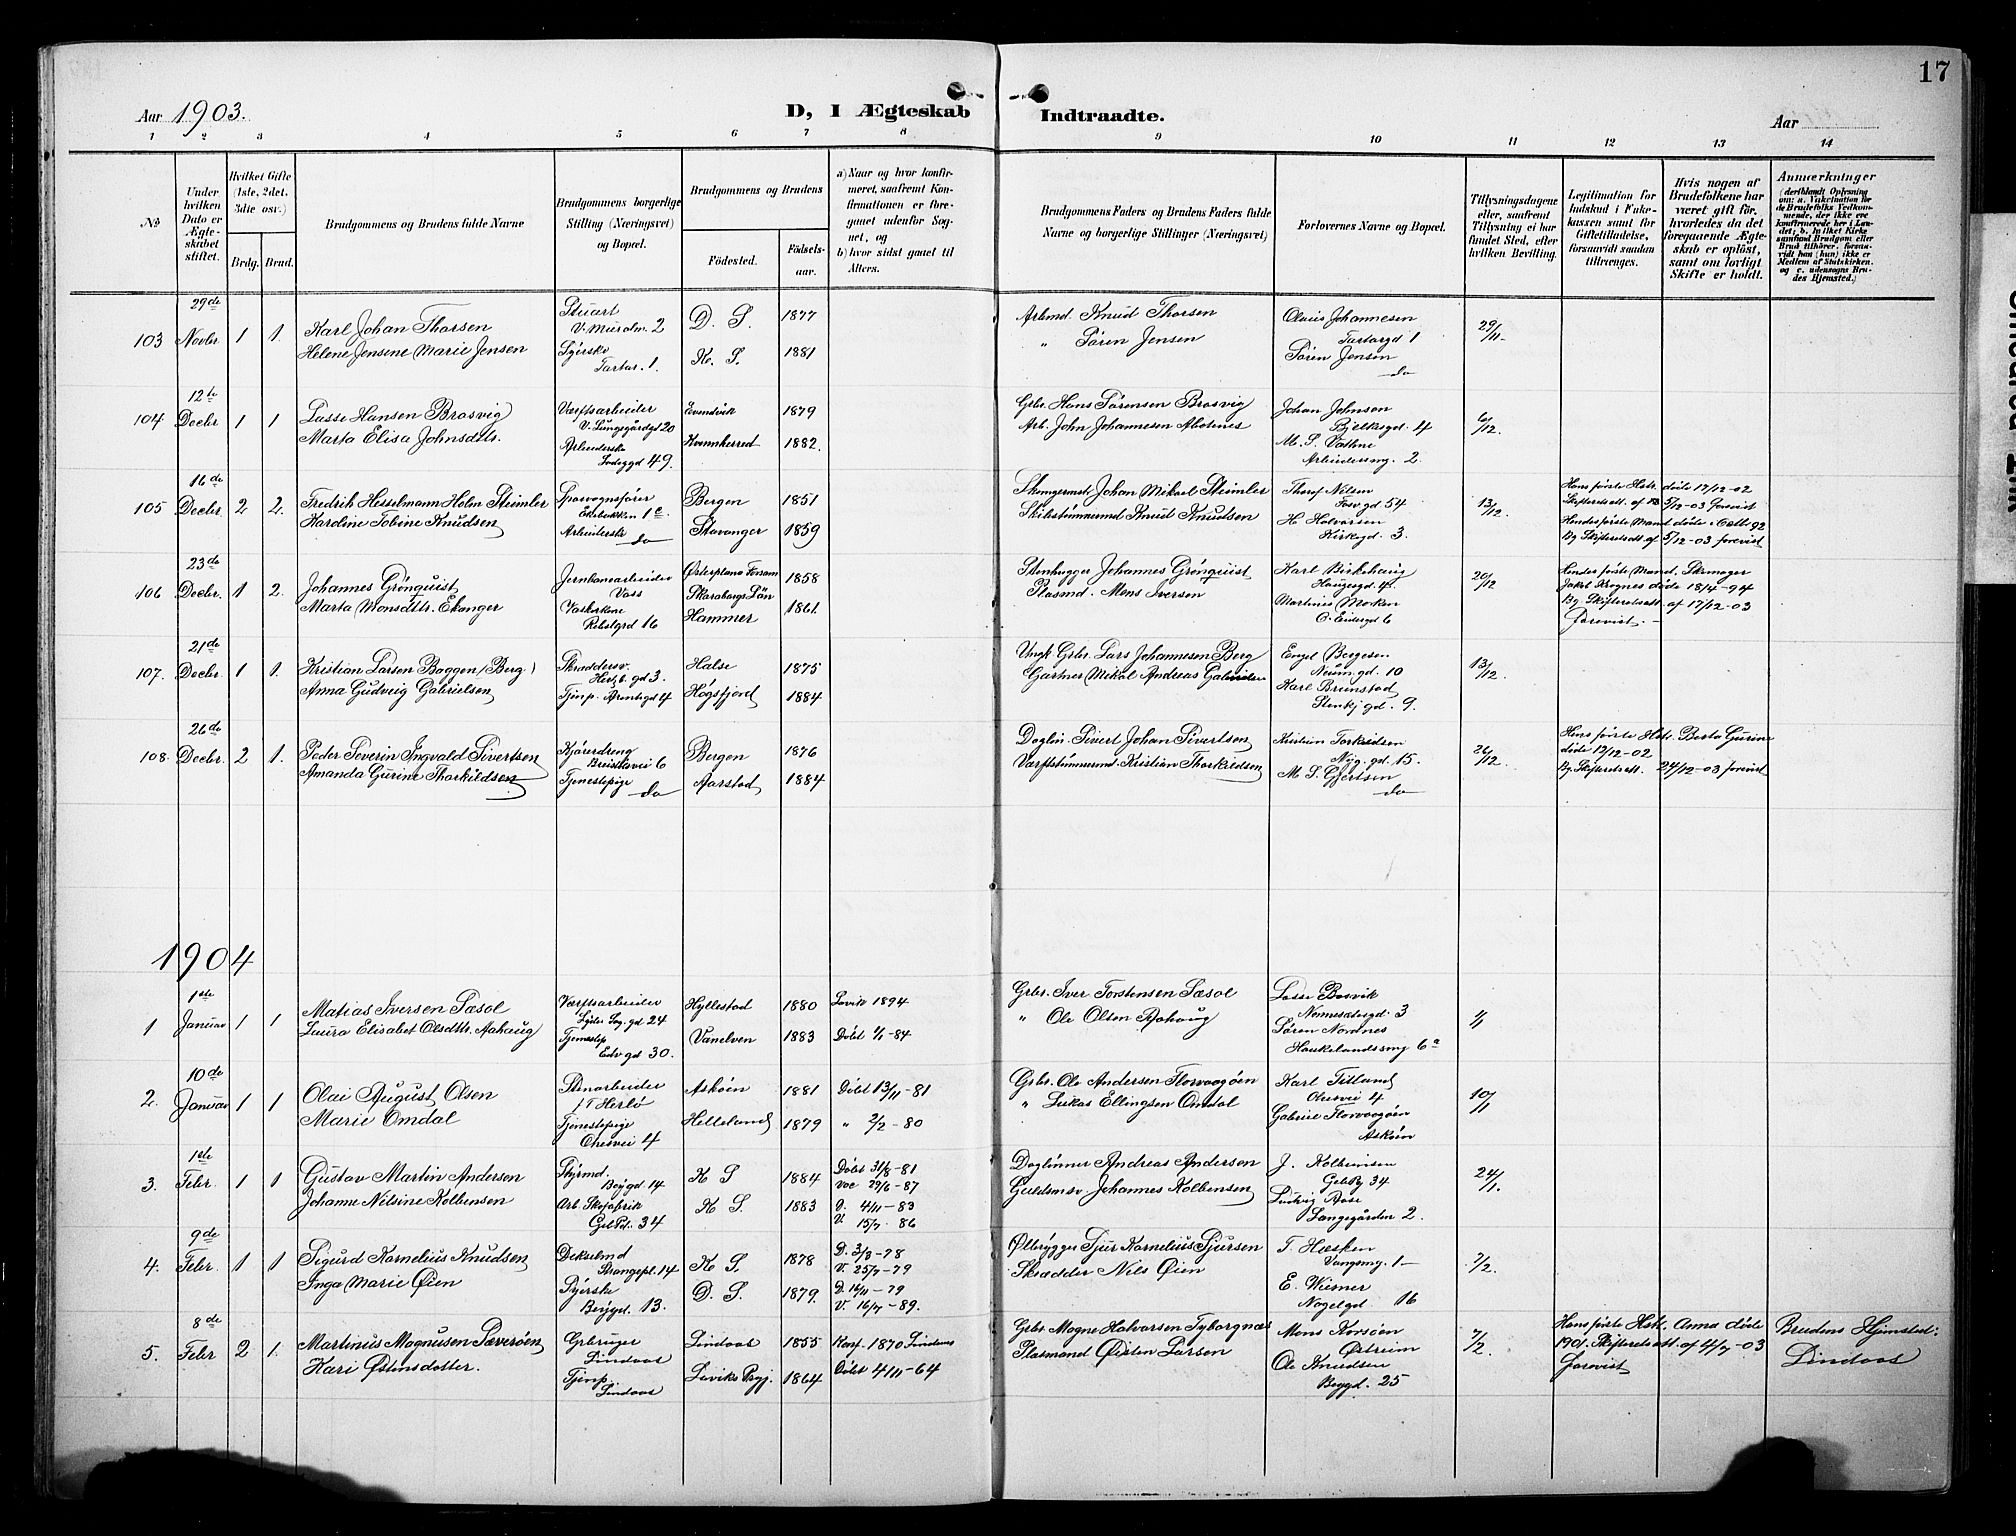 17
Aar 1903.
D, I Ægteskab Indtraadte.
Aar
1 2 3 4 5 6 7 8 9 10 11 12 13 14
No
Under hvilken Dato er Ægteskabet stiftet.
Hvilket Gifte (1ste, 2det, 3die osv.)
Brdg. Brud.
Brudgommens og Brudens fulde Navne
Brudgommens borgerlige Stilling (Næringsvei) og Bopæl.
Brudgommens og Brudens
Födested. Födselsaar.
a) Naar og hvor konfirmeret, saafremt Konfirmationen er foregaaet udenfor Sognet, og
b) hvor sidst gaaet til Alters.
Brudgommens Faders og Brudens Faders fulde Navne og borgerlige Stillinger (Næringsvei)
Forlovernes Navne og Bopæl.
Tillysningsdagene eller, saafremt Tillysning ei har fundet Sted, efter hvilken Bevilling.
Legitimation for Indskud i Enkekassen samt for Giftetilladelse, forsaavidt saadan tiltrænges.
Hvis nogen af Brudefolkene har været gift för, hvorledes da det foregaaende Ægteskab er oplöst, samt om lovligt Skifte er holdt.
Anmærkninger
103 29de Novbr 1 1.
Karl Johan Thorsen
Helene Jensene Marie Jensen
Stuart
V. Muralm. 2
Syerske
Tartar. 1.
D. S. 1877
K. S. 1881
Arbmd Knud Thorsen
" Sören Jensen
Olaus Johannesen
Tartargd 1
Sören Jensen
do
29/11-
104 12te Decbr 1 1
Lasse Hansen Brosvig
Marta Elisa Johnsdtr.
Værftsarbeider
V. Lungegårdgt 20
Arbeiderske
49.
Evendvik 1879
Kvinnherred 1882.
Grbr. Hans Sörensen Brosvig
Arb. John Johannesen
Johan Johnsen
gd. 4
M. S. Vathne
Arbeidersmg. 2.
6/12.
105 16de Decbr. 2 2.
Fredrik Hesselmann Holm Steimler
Karoline Tobine Knudsen
Sporvognsförer
1c
Arbeiderske do
Bergen 1851
Stavanger 1859
Johan Mikael Steimler
Skibstömmermd Knud Knudsen
Nilsen
gd 54
H. Halvorsen
Kirkegd. 3.
13/12.
Hans förste Hstr. döde 17/12-02
Skifteretsatt. af 5/12-03 forevist
Hendes förste Mand döde i Octb 92
Bg. Skifteretsatt. af 5/12-03 forevist
106 23de Decbr. 1 2.
Johannes Grönquist
Marta Monsdtr. Ekanger
Jernbanearbeider
Voss
Rebslgrd 16
Österplana Forsam
Skaraborgs Län 1858
Hammer 1861.
Stenhugger Johannes Grönquist
Plasmd. Mons Iversen
Karl Birkehaug
Haugegd. 4.
Martinus Morken
gd 6
20/12
Hendes förste Mand, Skomager
Jakob Krognes döde 18/4-94
Bg. Skifteretsatt. af 17/12-03
Forevist.-
107. 21de Decbr. 1 1.
Kristian Larsen Baggen (Berg)
Anna Gudveig Gabrielsen
Skræddersv.
gd 3.
Tjenp. gd 4
Halse 1875
Högsfjord 1884
Ungk. Grbr. Lars Johannesen Berg
Gartner Mikal Andreas Gabrielsen
Engel Bergesen
Neumgd. 10
Karl Brunstad
Stenkj gd. 9.
13/12
108. 26de Decbr. 2 1.
Peder Severin Ingvald Sivertsen
Amanda Gurine Thorkildsen
Kjöredreng
Breistølvei 6
Tjenestepige do
Bergen 1876
Aarstad 1884
Daglön. Sivert Johan Sivertsen
Værftstömmermd. Kristian Thorkildsen
Kristian Torkildsen
Nyg. gd. 15.
M. S. Gjertsen
do
26/12
Hans förste Hstr. Berta Gurine
döde 12/12-02
Bg. Skifteretsatt. 24/12-03 forevist
1904
1 1ste Januar 1 1
Matias Iversen Sæsol
Laura Elisabet Olsdtr. Aahaug
Værftsarbeider
gd 24
Tjenestep
Edv gd 30.
Hyllestad 1880
Vanelven 1883
Lavik 1894
Döbt 1/1-84
Grbr. Iver Torstensen Sæsol
" Ole Olsen Aahaug
Lasse Bosvik
Nonnesætergd. 3
Sören Nordnes
Haukelandssmg 6a
1/1
2. 10de Januar 1 1
Olai August Olsen
Marie Omdal
Stenarbeider
/T Herlö
Tjenestepige
Olesvei 4
Asköen 1881
Helleland 1879
Döbt 13/11-81
" 2/2-80
Grbr. Ole Andersen Florvaagöen
" Lukas Ellingsen Omdal
Karl Titland
Olesvei 4
Gabriel Florvaagöen
Asköen
10/1
3. 1ste Febr. 1 1
Gustav Martin Andersen
Johanne Nilsine Kolbensen
Styrmd.
Bøygd 14
Arb. Skofabrik
34
K S 1884
K S. 1883
Döbt 31/8-81
Vac 29/6-87
D. 4/11-83
V. 15/7 86
Daglönner Andreas Andersen
Guldsmsv Johannes Kolbensen
J. Kolbensen
34
Ludvig Aase
Langegården 2.
24/1.
4. 9de Febr. 1 1
Sigurd Kornelius Knudsen
Inga Marie Öien
Dekselmd
Strangepl. 14
Syerske
Bøygd. 13.
K S. 1878
D. S. 1879.
D. 3/3-78
V. 25/7-79
D. 16/11-79
V. 16/7-89.
Ölbrygger Sjur Kornelius Sjursen
Skrædder Nils Öien
T. Hæsken
Vangsmg. 1-
E. Wiesner
Nagelgd. 16
7/2.
5. 8de Febr 2 1.
Martinus Magnusen Sæveröen
Kari Östensdotter.
Grbruger
Lindaas
Tjenp.
Lindaas
Lindaas 1855
Laviks Prgj. 1864
Konf. 1870 Lindaas
Döbt 4/11-64
Grbr. Magne Halvorsen Tyborgnæs
Plasmand Östen Larsen
Mons Korsöen
Östreim
Ole Knudsen
Bøygd. 25
7/2.
Hans förste Hstr. Anna döde
1901. Skifteretsatt. af 4/7-03
forevist
Brudens Hjemsted:
Lindaas